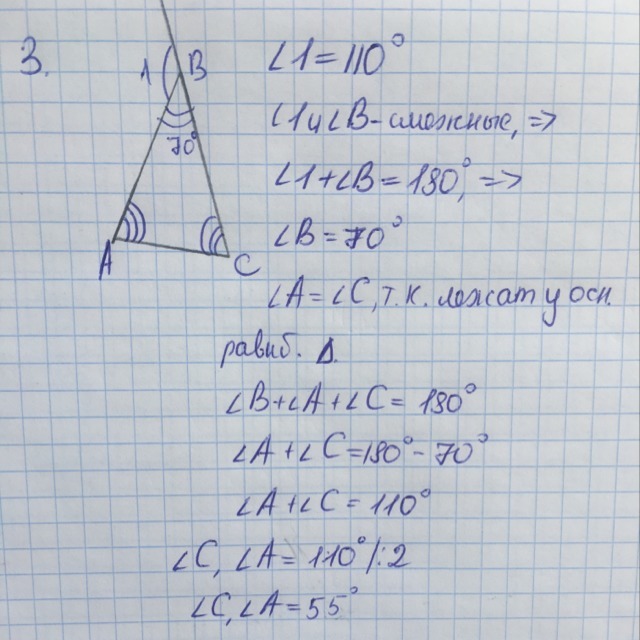 3.
1 B
70°
A
C
∠1 = 110°
∠1 и ∠B - смежные, =>
∠1 + ∠B = 180°, =>
∠B = 70°
∠A = ∠C, т.к. лежат у осн.
равноб. Δ.
∠B + ∠A + ∠C = 180°
∠A + ∠C = 180° - 70°
∠A + ∠C = 110°
∠C, ∠A = 110° /:2
∠C, ∠A = 55°